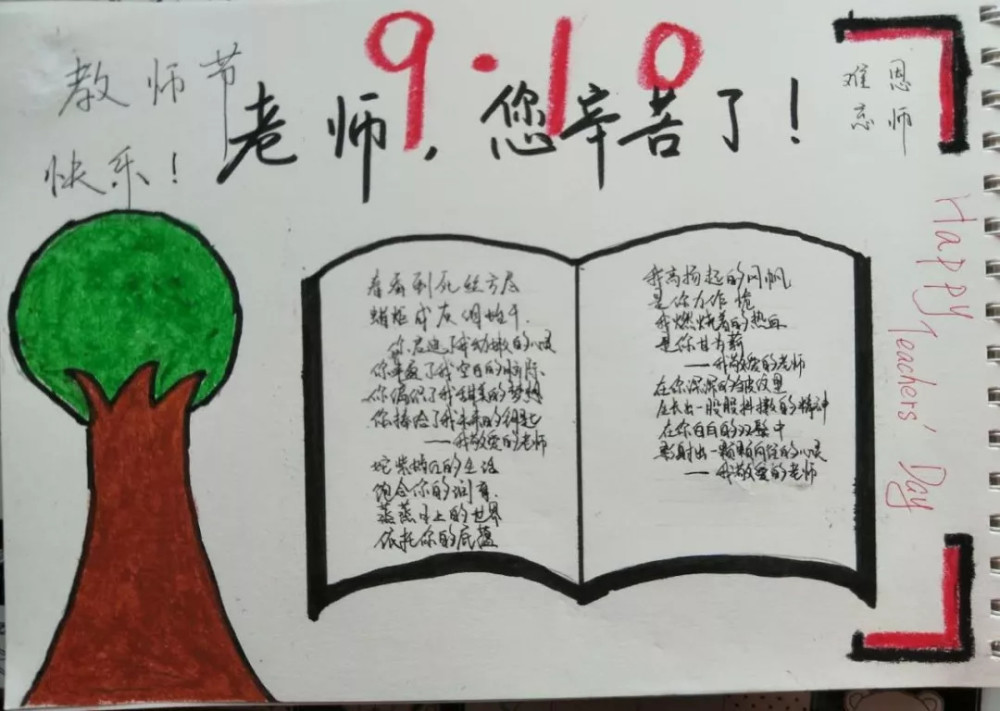 9·10
教师节
快乐！
老师，您辛苦了！
恩师
难忘
春蚕到死丝方尽
蜡炬成灰泪始干
你启迪了我幼嫩的心灵
你丰盈了我空白的
你编织了我甜美的梦想
你捧给了我未来的
——我敬爱的老师
姹紫嫣红的生活
饱含你的润育
蒸蒸日上的世界
依托你的底蕴
我高扬起的风帆
是你力作桅
我燃烧着的热血
是你甘为薪
——我敬爱的老师
在你深深的皱纹里
生长出一股股抖擞的精神
在你白白的双鬓中
影射出一颗颗向往的心灵
——我敬爱的老师
Happy Teachers' Day